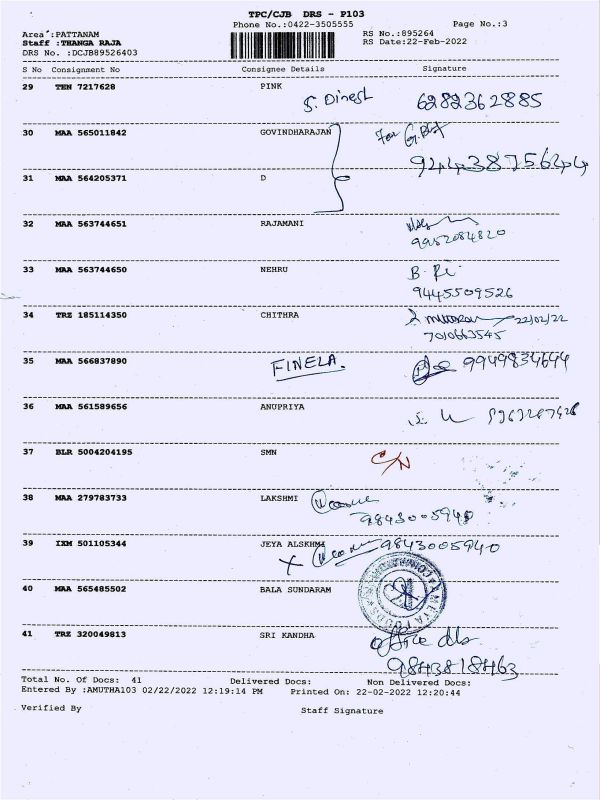 TPC/CJB DRS - P103
Phone No.:0422-3505555 Page No.:3
Area :PATTANAM RS No.:895264
Staff :THANGA RAJA RS Date:22-Feb-2022
DRS No. :DCJB89526403
S No Consignment No Consignee Details Signature
29 TEN 7217628 PINK
S. Dinesh 6282362885
30 MAA 565011842 GOVINDHARAJAN
For
9443875644
31 MAA 564205371 D
32 MAA 563744651 RAJAMANI
9952084820
33 MAA 563744650 NEHRU B.
9445509526
34 TRZ 185114350 CHITHRA 22/02/22
7010663545
35 MAA 566837890 FINELA. 9949834644
36 MAA 561589656 ANUPRIYA
37 BLR 5004204195 SMN C/N
38 MAA 279783733 LAKSHMI
9843005940
39 IXM 501105344 JEYA ALSKHMI 9843005940
40 MAA 565485502 BALA SUNDARAM
41 TRZ 320049813 SRI KANDHA office
9843818463
Total No. Of Docs: 41 Delivered Docs: Non Delivered Docs:
Entered By :AMUTHA103 02/22/2022 12:19:14 PM Printed On: 22-02-2022 12:20:44
Verified By Staff Signature